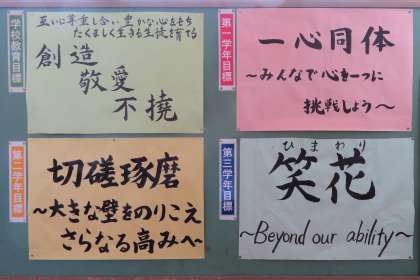 学校教育目標
互いに尊重し合い豊かな心をもち
たくましく生きる生徒を育てる
創造
敬愛
不撓
第一学年目標
一心同体
〜みんなで心を一つに
挑戦しよう〜
第二学年目標
切磋琢磨
〜大きな壁をのりこえ
さらなる高みへ〜
第三学年目標
ひまわり
笑花
〜Beyond our ability〜